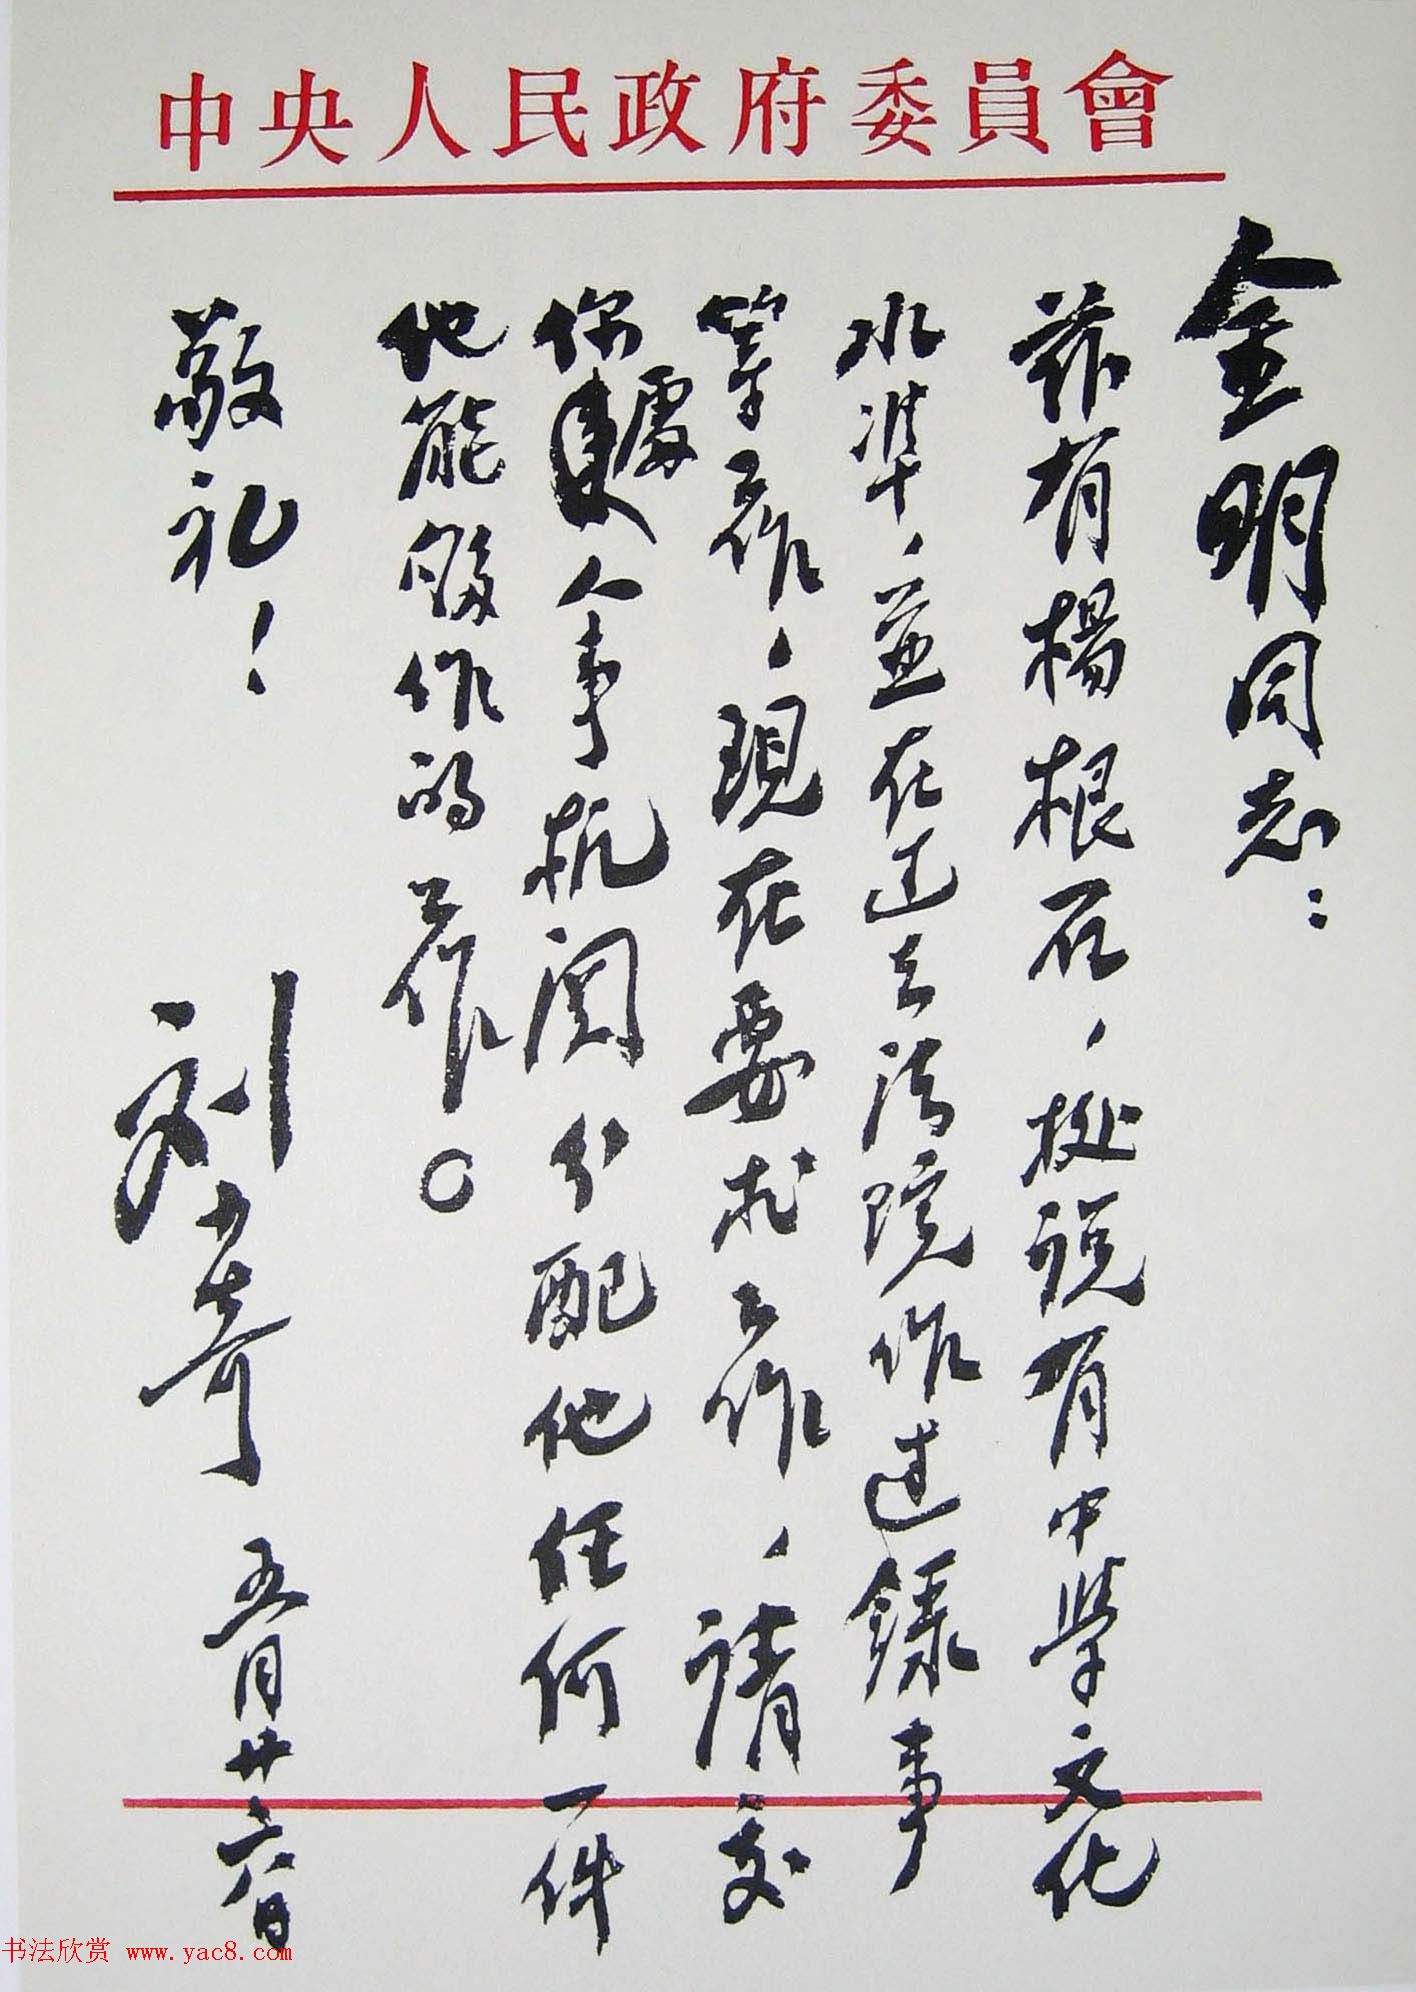 中央人民政府委員會
金明同志：
茲有楊根石，据說有中学文化
水準，並在过去法院作过錄事
等工作，現在要求工作，請交
你處人事机関分配他任何一件
他能够作的工作。
敬礼！
刘少奇 五月廿六日
书法欣赏 www.yac8.com